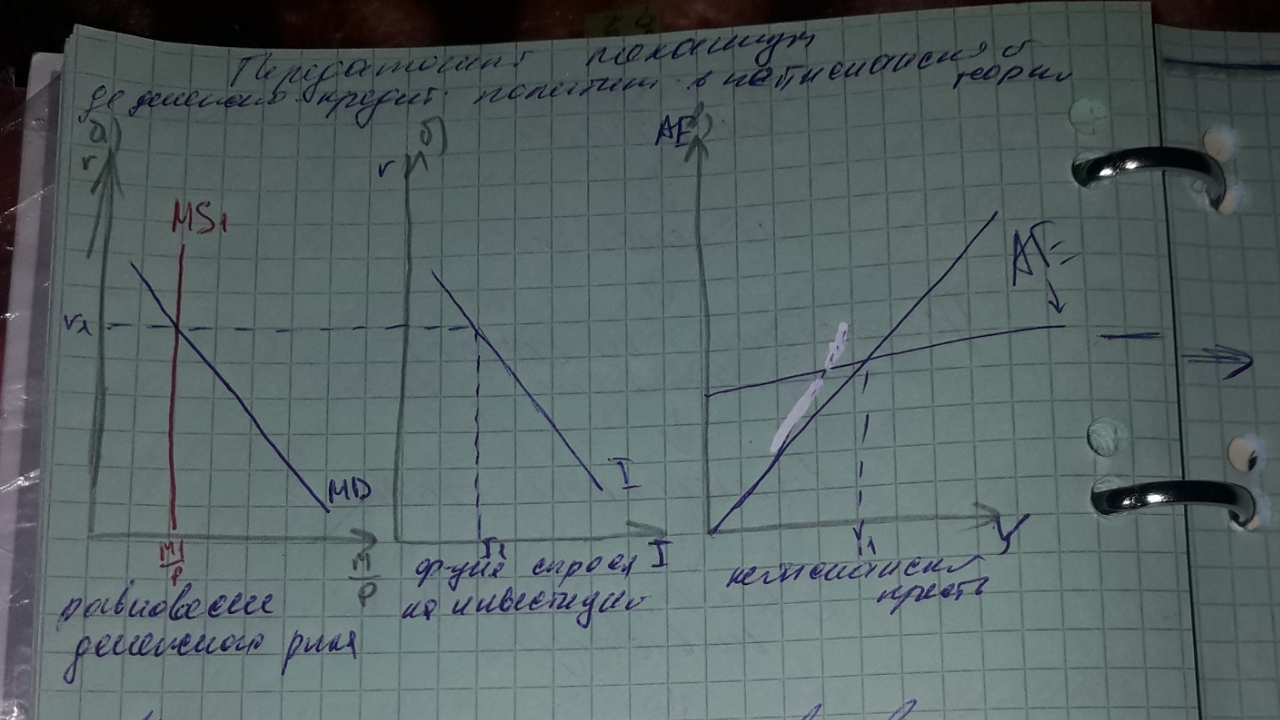 Передаточный механизм
денежно-кредит. политики в кейнсианской теории
а)
r
MS₁
r₁
MD
M₁/P
M/P
равновесие
денежного рынка
б)
r
I
I₁
I
функ спроса
на инвестиции
AE
AE
Y₁
Y
кейнсианский
крест